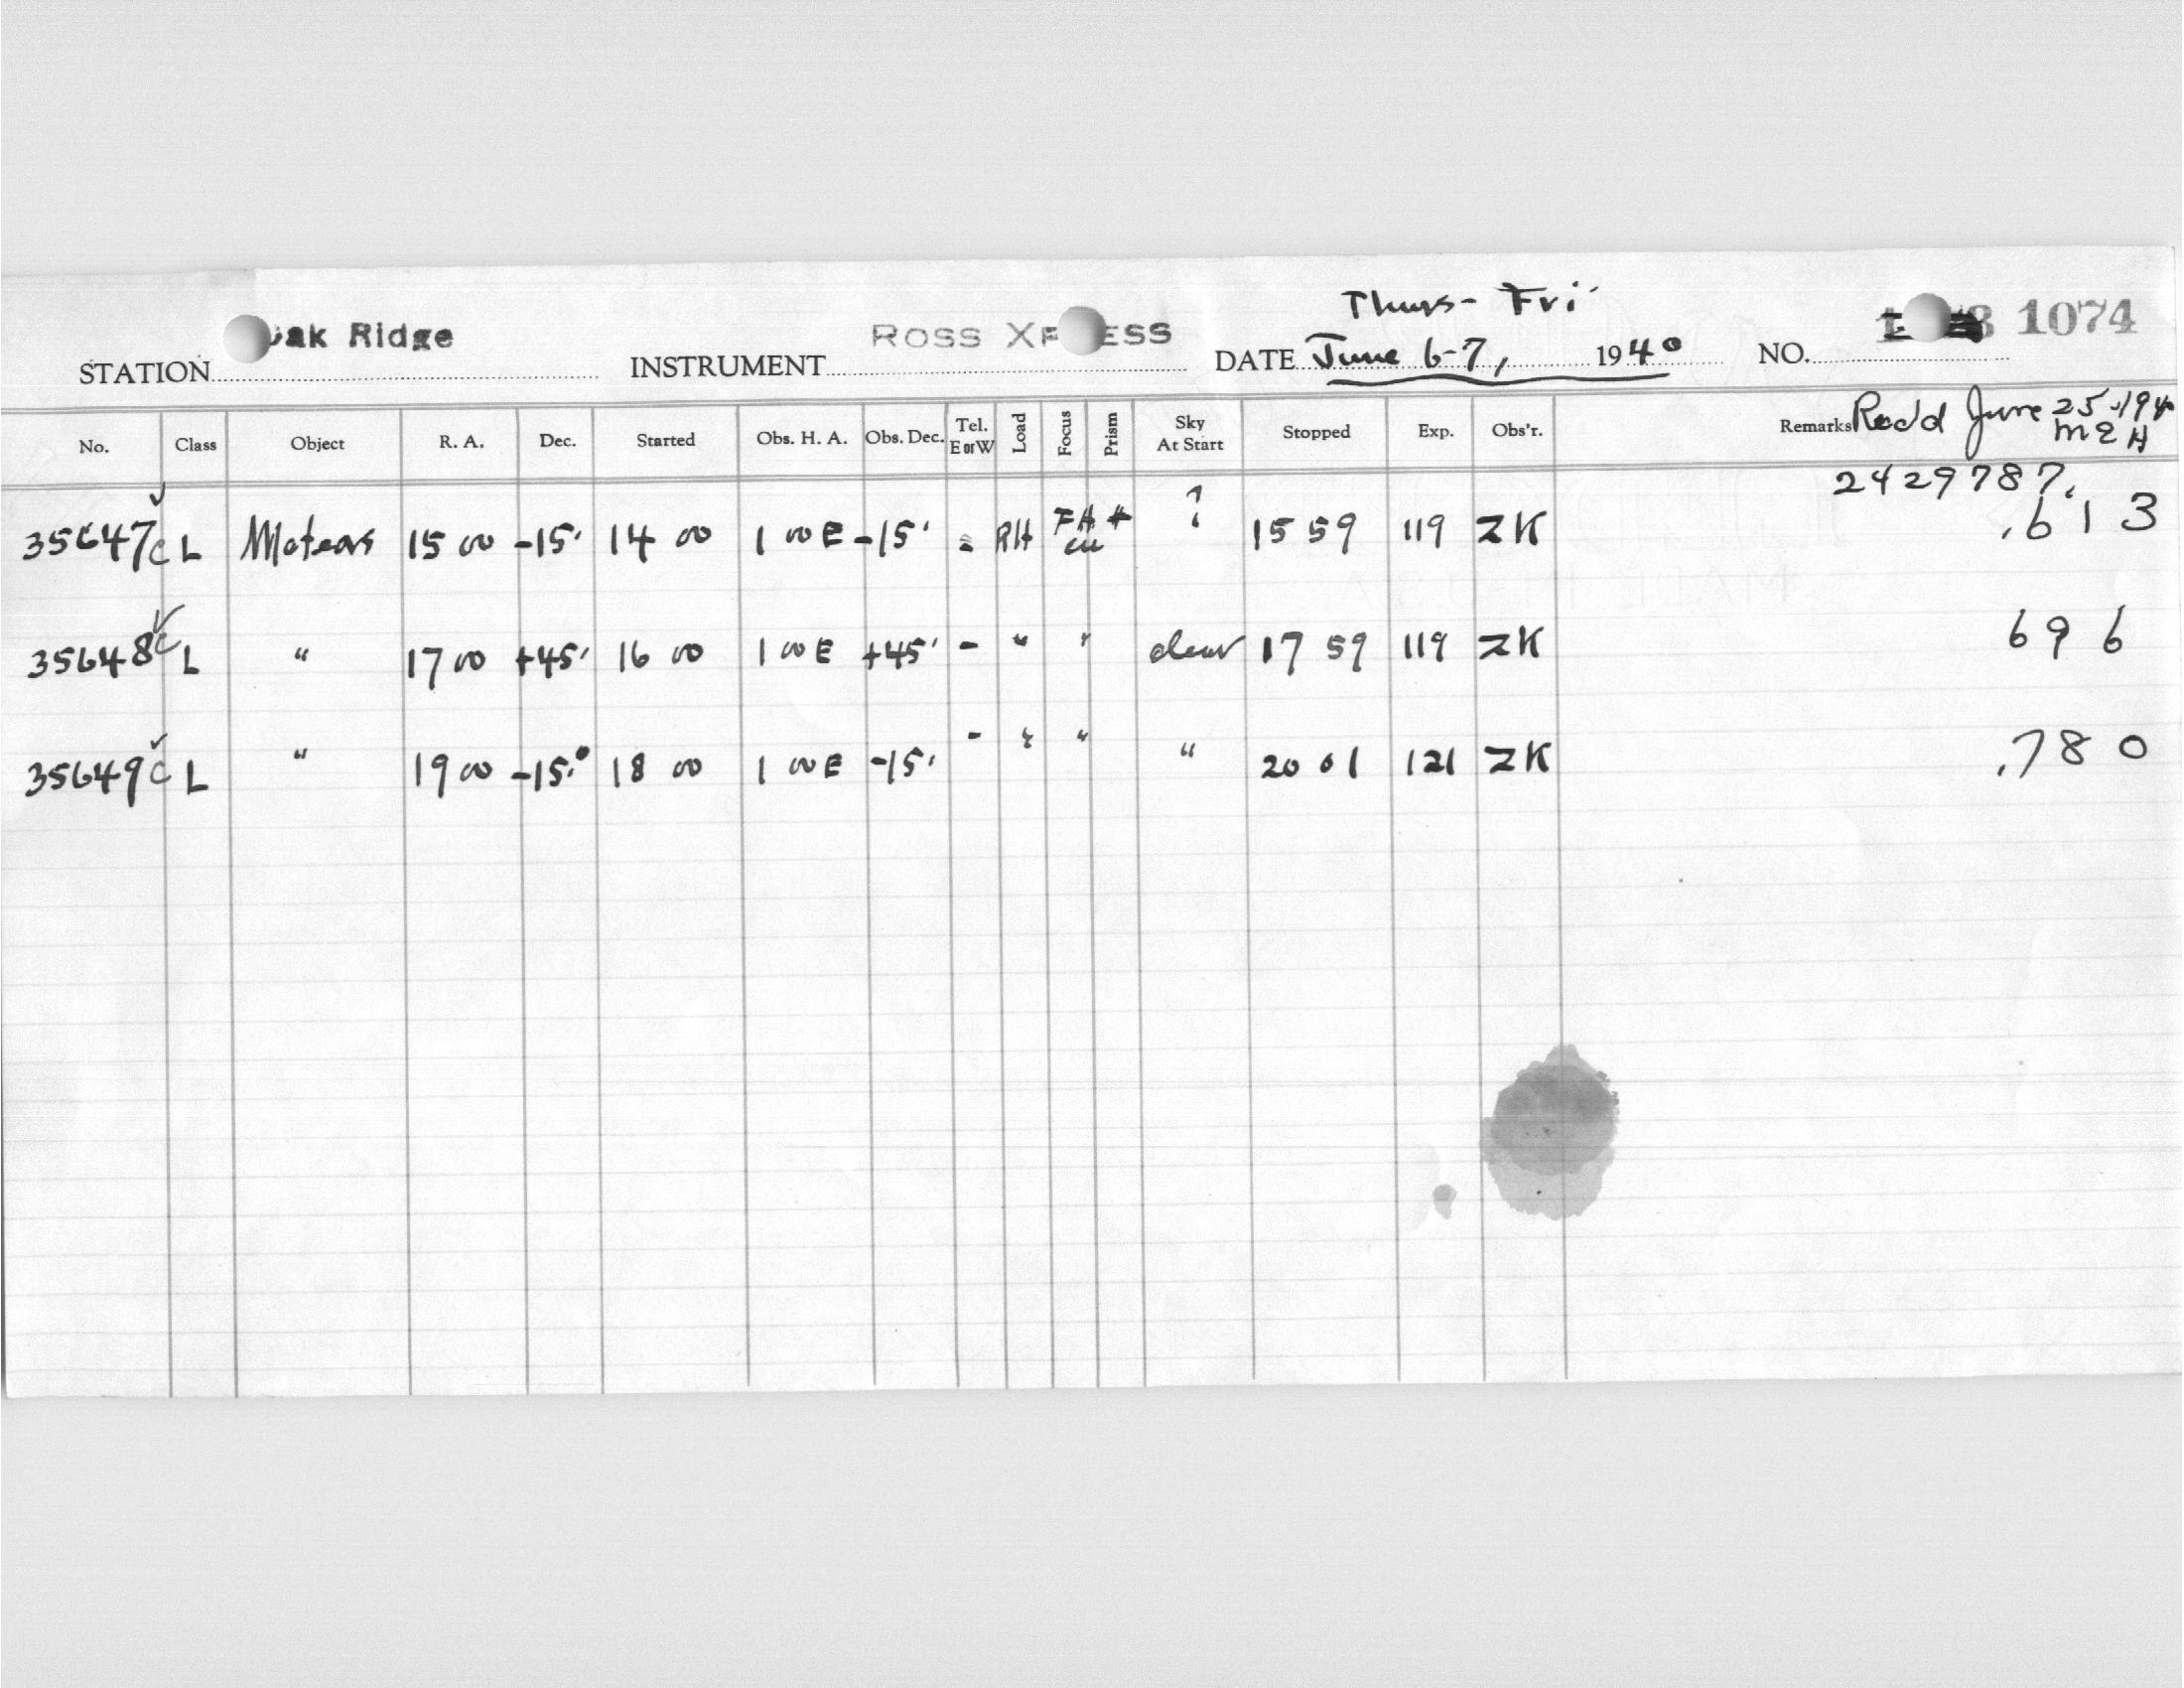 Thurs - Fri
STATION Oak Ridge INSTRUMENT ROSS XPRESS DATE June 6-7, 1940 NO. 1074
No. Class Object R. A. Dec. Started Obs. H. A. Obs. Dec. Tel. E or W Load Focus Prism Sky At Start Stopped Exp. Obs'r. Remarks Rec'd June 25-1940
MEH
2429787.
35647c L Meteors 15 00 -15° 14 00 1 00 E -15° - RH FH + ? 15 59 119 ZK .613
35648c L " 17 00 +45° 16 00 1 00 E +45° - " " clear 17 59 119 ZK 696
35649c L " 19 00 -15° 18 00 1 00 E -15° - " " " 20 01 121 ZK .780